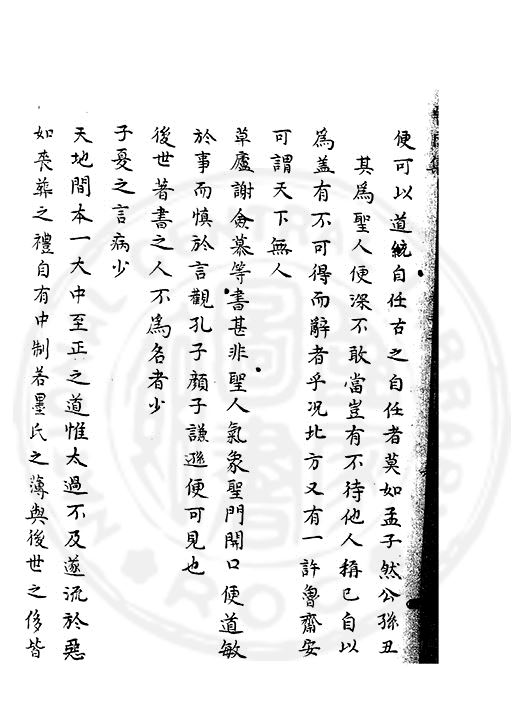 便可以道統自任古之自任者莫如孟子然公孫丑
其為聖人便深不敢當豈有不待他人稱已自以
為盖有不可得而辭者乎况北方又有一許魯齋安
可謂天下無人
草廬謝僉慕等書甚非聖人氣象聖門開口便道敏
於事而慎於言觀孔子顔子謙遜便可見也
後世著書之人不為名者少
子憂之言病少
天地間本一大中至正之道惟太過不及遂流於惡
如喪葬之禮自有中制若墨氏之薄與後世之侈皆